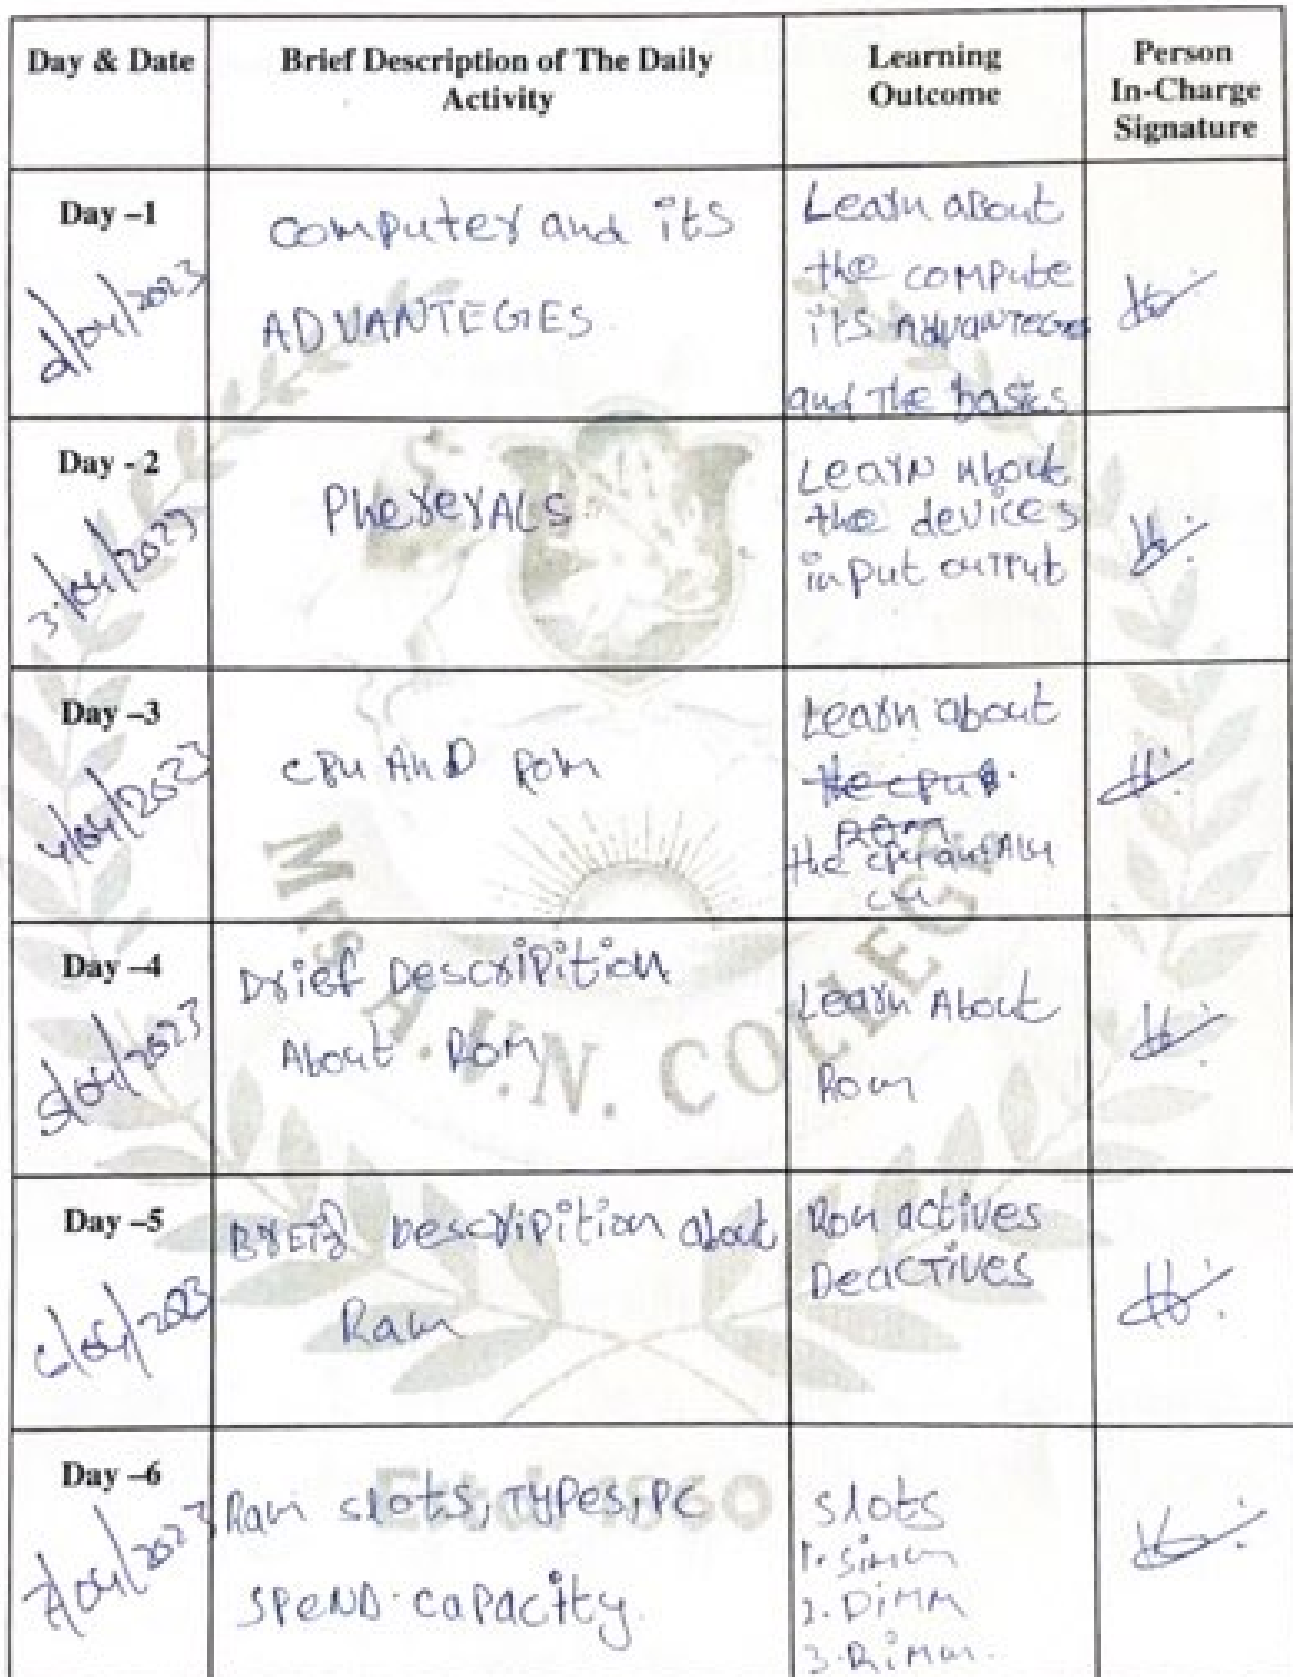 Day & Date
Brief Description of The Daily
Activity
Learning
Outcome
Person
In-Charge
Signature
Day –1
2/04/2023
computer and its
ADVANTEGES.
Learn about
the compute
its ADVANTEGES
and The basics
Day - 2
3/04/2023
PhererALS
Learn About
the devices
input outPut
Day –3
4/04/2023
CPU AND Rom
Learn about
the cpu &
ROM
the cpu and ALU
cu
Day –4
5/04/2023
Drief Descripition
About ROM
Learn About
Rom
Day –5
6/04/2023
Breif Descripition about
Ram
Rom actives
Deactives
Day –6
7/04/2023
Ram slots, TYPes, PC
SPEND. capacity.
slots
1. Simm
2. DiMM
3. Rimm.
MRS. A.V.N. COLLEGE
Estd 1860